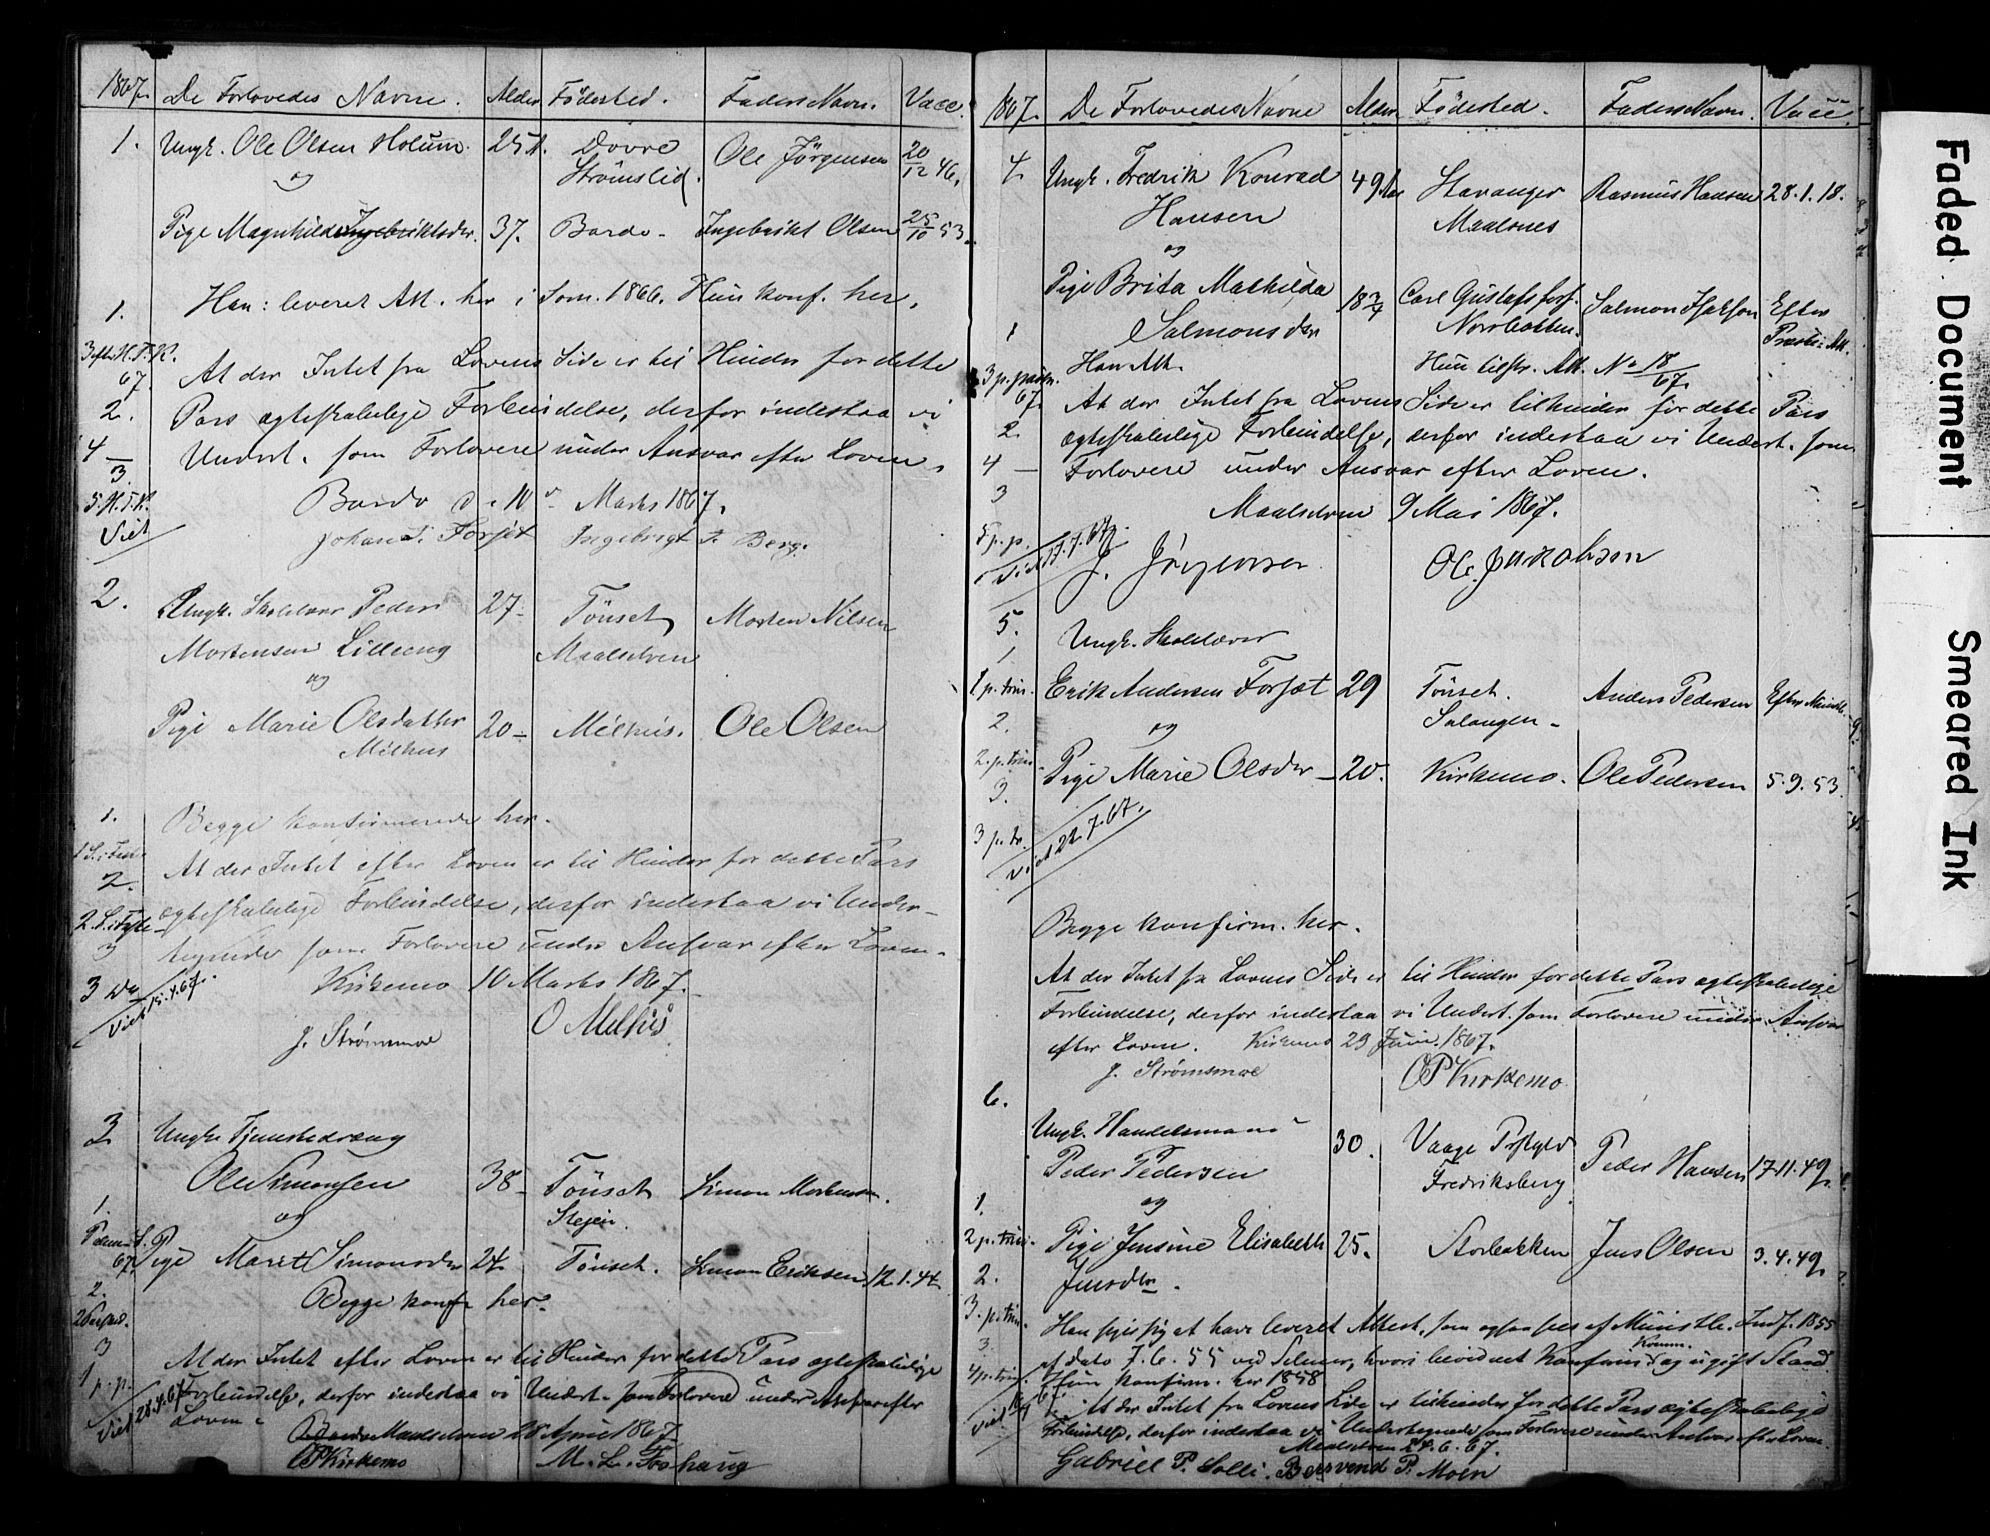 1867. De Forlovedes Navne. Alder Födested. Faders Navn. Vacc.
1. Ungk. Ole Olsen Holum. 25 A. Dovre Ole Jörgensen 20/12 46.
og Strömslid.
Pige Magnhild Ingebriktsdr. 37. Bardo - Ingebrikt Olsen 25/10 53.
1. Han: leveret Att. her i Som. 1866. Hun konf. her.
3 efter H. 3 K. 67. At der Intet fra Lovens Side er til Hinder for dette
2. Pars ægteskabelige Forbindelse, derfor indestaa vi
4 — Undert. som Forlovere under Ansvar efter Loven.
3.
5. H. 3. K. Bardo d. 10 Marts 1867.
Viet Johan J. Forset Ingebrigt P. Berg.
2. Ungk. Skolelærer Peder 27- Tönset Morten Nilsen
Mortensen Lilleeng Maalselven
og
Pige Marie Olsdatter 20- Melhus. Ole Olsen
Melhus
1. Begge konfirmerede her.
1 S. i Fast. At der Intet efter Loven er til Hinder for dette Pars
2. ægteskabelige Forbindelse, derfor indestaa vi Under-
2 S. i Faste
3 tegnede som Forlovere under Ansvar efter Loven.
3 Do Kirkemo 10 Marts 1867.
Viet 15.4.67.
J. Strømsmoe O Melhus
3 Ungk. Tjenestedreng
Ole Simonsen 38- Tönset Simon Mortensen.
1. og Stejen.
Palme S. 67. Pige Marit Simonsdr 24. Tönset. Simon Eriksen 12.1.44
2. Begge konf. her.
2 Paaskd.
3 At der Intet efter Loven er til Hinder for dette Pars ægteskabelige
1 p. p. Forbindelse, derfor indestaa vi Undert. som Forlovere under Ansvar efter
Viet 28.4.67 Loven.
Bardo Maalselven 28 April 1867
OPKirkemo M. L. Foshaug
1867. De Forlovedes Navne Alder Födested. Faders Navn. Vacc.
4. Ungk. Fredrik Konrad 49 Aar Stavanger Rasmus Hansen 28.1.18.
Hansen Maalsnes
og
Pige Brita Mathilda 18 3/4 Carl Gustafs fors. Salmon Efter
1 Salmonsdr Norrbotten. Præste Att.
Han Att. Hun tilstr. Att. No 18/67.
3 p. paask. 67. At der Intet fra Lovens Side er til hinder for dette Pars
2. ægteskabelige Forbindelse, derfor indestaa vi Undert. som
4 — Forlovere under Ansvar efter Loven.
3 Maalselven 9 Mai 1867.
5 p. p.
Viet 17.7.67.
J. Jörgensen Ole Jakobsen
5. Ungk. Skolelærer
1
1 p. trin. Erik Andersen Forset 29 Tönset. Anders Pedersen Efter Ministb.
2. og Salangen -
2. p. trin. Pige Marie Olsdr - 20. Kirkemo. Ole Pedersen 5.9.53.
3.
3 p. tr. Viet 22.7.67.
Begge konfirm. her.
At der Intet fra Lovens Side er til Hinder for dette Pars ægteskabelige
Forbindelse, derfor indestaa vi Undert. som Forlovere under Ansvar
efter Loven. Kirkemo 23 Juni 1867.
J. Strømsmoe OPKirkemo
6.
Ungk. Handelsmand 30. Vaage Prstgjld Peder Hansen 17.11.49.
Peder Pedersen Fredriksberg
1. og
2 p. trin. Pige Jensine Elisabeth 25. Storbakken Jens Olsen 3.4.49.
2. Jensdtr.
3. p. trin. Han siges sig at have leveret Attest, som ogsaa sees af Ministb. Indf. 1855
3. af Dato 7.6.55 ved Selmer, hvori bevidnet Konfirm. Komm. og ugift Stand.
4 p. trin. Hun konfirm. her 1858
Viet At der Intet fra Lovens Side er til hinder for dette Pars ægteskabelige
Forbindelse, derfor indestaa vi Undertegnede som Forlovere under Ansvar efter Loven.
Maalselven 24.6.67.
Gabriel P. Solli. Bersvend P. Moen
Faded Document
Smeared Ink